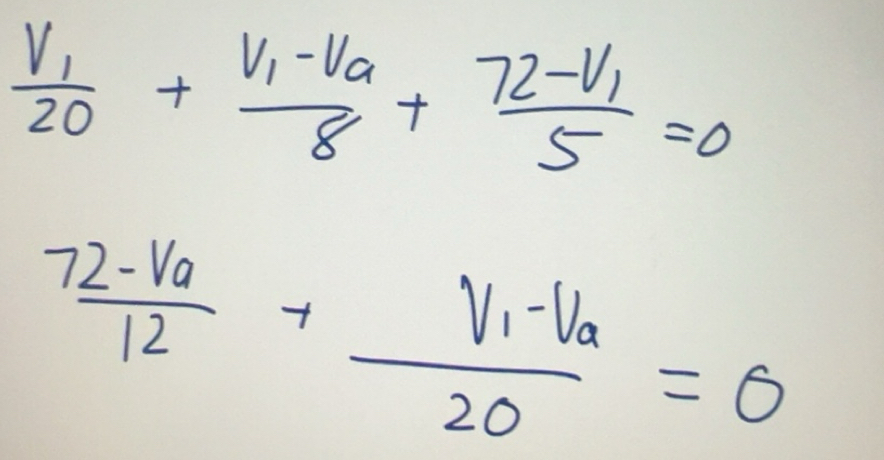 V₁/20 + V₁-Va/8 + 72-V₁/5 =0
72-Va/12 + V₁-Va/20 = 0